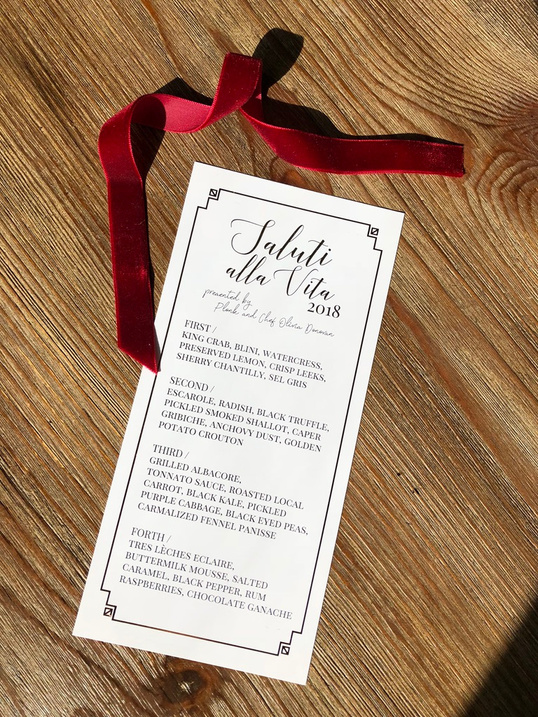 Saluti
alla Vita
2018
presented by
Plonk and Chef Olivia Donovan
FIRST /
KING CRAB, BLINI, WATERCRESS,
PRESERVED LEMON, CRISP LEEKS,
SHERRY CHANTILLY, SEL GRIS
SECOND /
ESCAROLE, RADISH, BLACK TRUFFLE,
PICKLED SMOKED SHALLOT, CAPER
GRIBICHE, ANCHOVY DUST, GOLDEN
POTATO CROUTON
THIRD /
GRILLED ALBACORE,
TONNATO SAUCE, ROASTED LOCAL
CARROT, BLACK KALE, PICKLED
PURPLE CABBAGE, BLACK EYED PEAS,
CARMALIZED FENNEL PANISSE
FORTH /
TRES LÈCHES ECLAIRE,
BUTTERMILK MOUSSE, SALTED
CARAMEL, BLACK PEPPER, RUM
RASPBERRIES, CHOCOLATE GANACHE